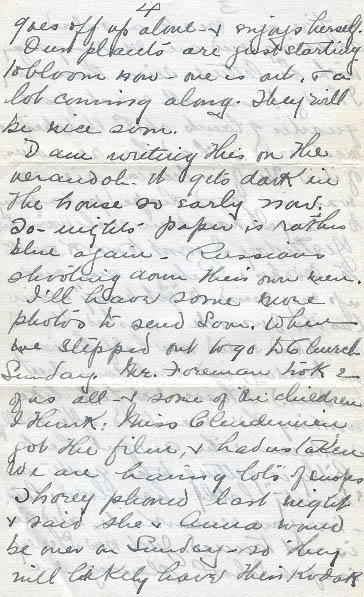 4
goes off up alone - & enjoys herself.
Our plants are just starting
to bloom now - one is out, & a
lot coming along. They will
be nice soon.
I am writing this on the
verandah - it gets dark in
the house so early now.
To-nights paper is rather
blue again - Russians
shooting down their own men.
I'll have some more
photos to send soon. When
we stepped out to go to Church
Sunday Mr. Foreman took 2
of us all - & some of the children
I think; Miss Clendennin
got the film, & had us taken
We are having lots of snaps
phoned last night
& said she & Anna would
be over on Sunday - so they
will likely have their Kodak